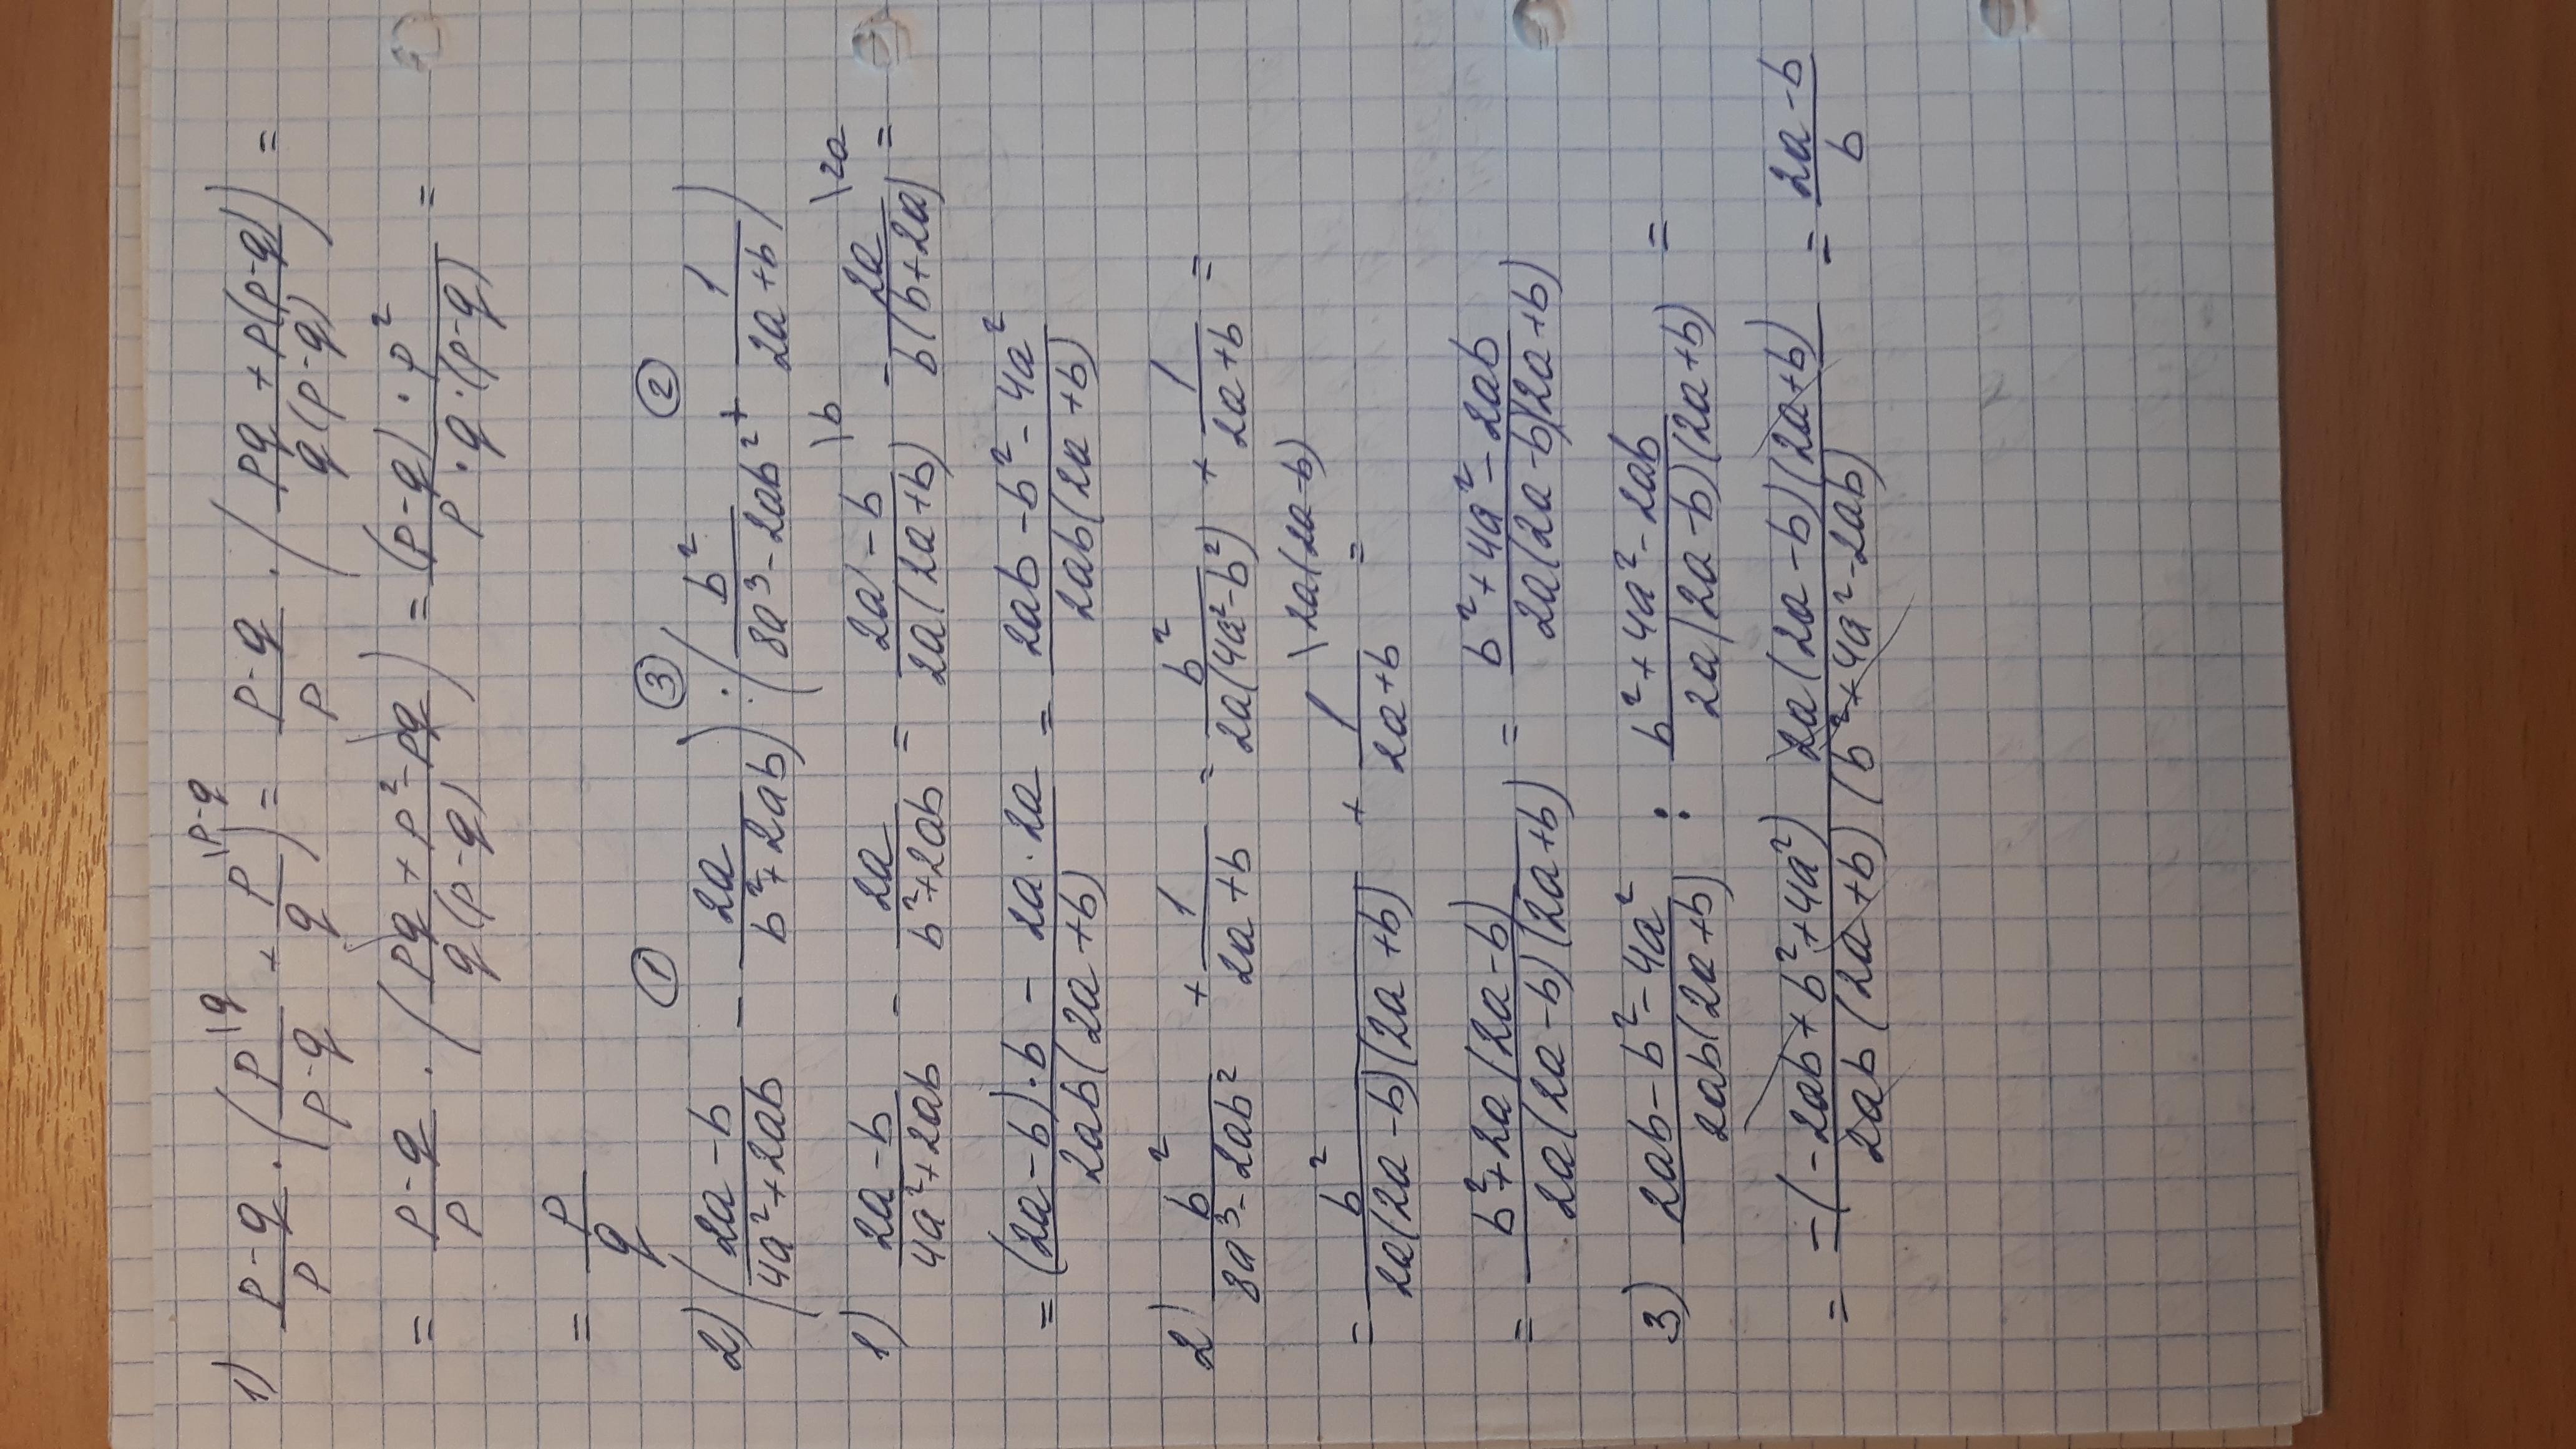 1) (p-q)/p · (p/(p-q) \q + p/q \p-q) = (p-q)/p · ((pq + p(p-q))/(q(p-q))) =
= (p-q)/p · ((pq + p² - pq)/(q(p-q))) = ((p-q) · p²)/(p · q · (p-q)) =
= p/q
① ③ ②
2) ((2a-b)/(4a²+2ab) - 2a/(b²+2ab)) : (b²/(8a³-2ab²) + 1/(2a+b))
1) (2a-b)/(4a²+2ab) - 2a/(b²+2ab) = (2a-b)/(2a(2a+b)) \b - 2a/(b(b+2a)) \2a =
= ((2a-b)·b - 2a·2a)/(2ab(2a+b)) = (2ab-b²-4a²)/(2ab(2a+b))
2) b²/(8a³-2ab²) + 1/(2a+b) = b²/(2a(4a²-b²)) + 1/(2a+b) =
= b²/(2a(2a-b)(2a+b)) + 1/(2a+b) \2a(2a-b) =
= (b²+2a(2a-b))/(2a(2a-b)(2a+b)) = (b²+4a²-2ab)/(2a(2a-b)(2a+b))
3) (2ab-b²-4a²)/(2ab(2a+b)) : (b²+4a²-2ab)/(2a(2a-b)(2a+b)) =
= (-(-2ab+b²+4a²) 2a(2a-b)(2a+b))/(2ab(2a+b)(b²+4a²-2ab)) = (2a-b)/b